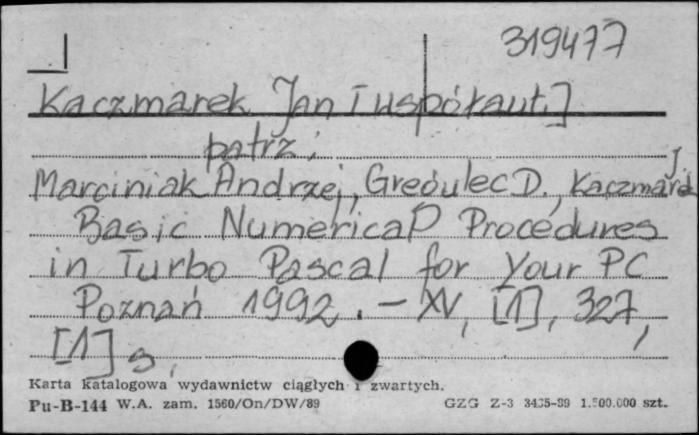 319477
Kaczmarek Jan [współaut.]
patrz:
Marciniak Andrzej, Gregulec D., Kaczmarek J.
Basic Numerical Procedures
in Turbo Pascal for Your PC
Poznań 1992. – XV, [1], 327,
[1] s.
Karta katalogowa wydawnictw ciągłych i zwartych.
Pu-B-144 W.A. zam. 1560/On/DW/89 GZG Z-3 3435-89 1.500.000 szt.